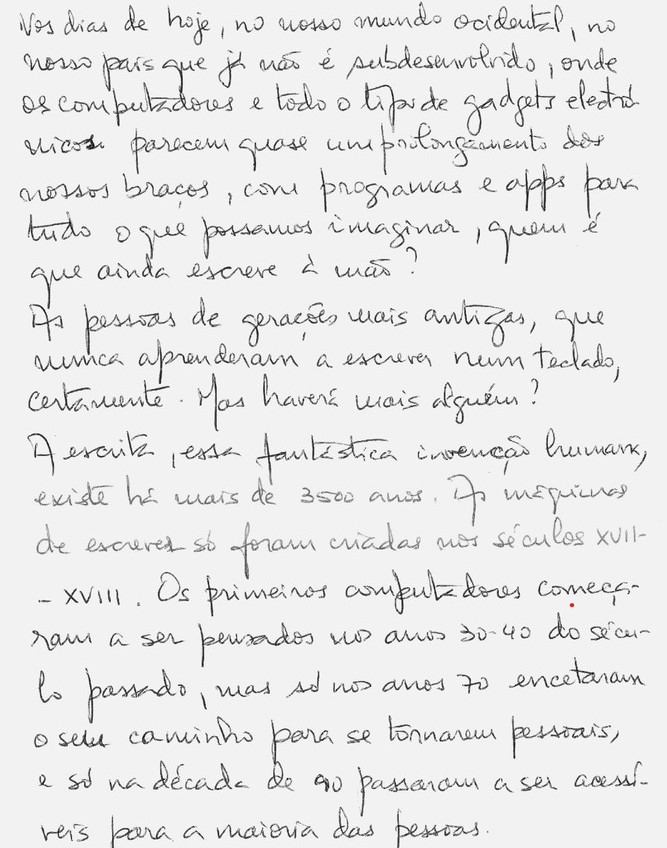 Nos dias de hoje, no nosso mundo ocidental, no
nosso país que já não é subdesenvolvido, onde
os computadores e todo o tipo de gadgets electró-
nicos parecem quase um prolongamento dos
nossos braços, com programas e apps para
tudo o que possamos imaginar, quem é
que ainda escreve à mão?
As pessoas de gerações mais antigas, que
nunca aprenderam a escrever num teclado,
certamente. Mas haverá mais alguém?
A escrita, essa fantástica invenção humana,
existe há mais de 3500 anos. As máquinas
de escrever só foram criadas nos séculos XVII-
- XVIII. Os primeiros computadores começa-
ram a ser pensados nos anos 30-40 do sécu-
lo passado, mas só nos anos 70 encetaram
o seu caminho para se tornarem pessoais,
e só na década de 90 passaram a ser acessí-
veis para a maioria das pessoas.